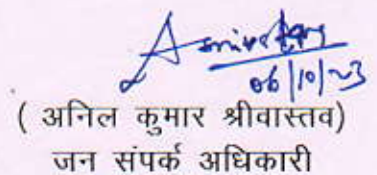 06/10/23
( अनिल कुमार श्रीवास्तव)
जन संपर्क अधिकारी